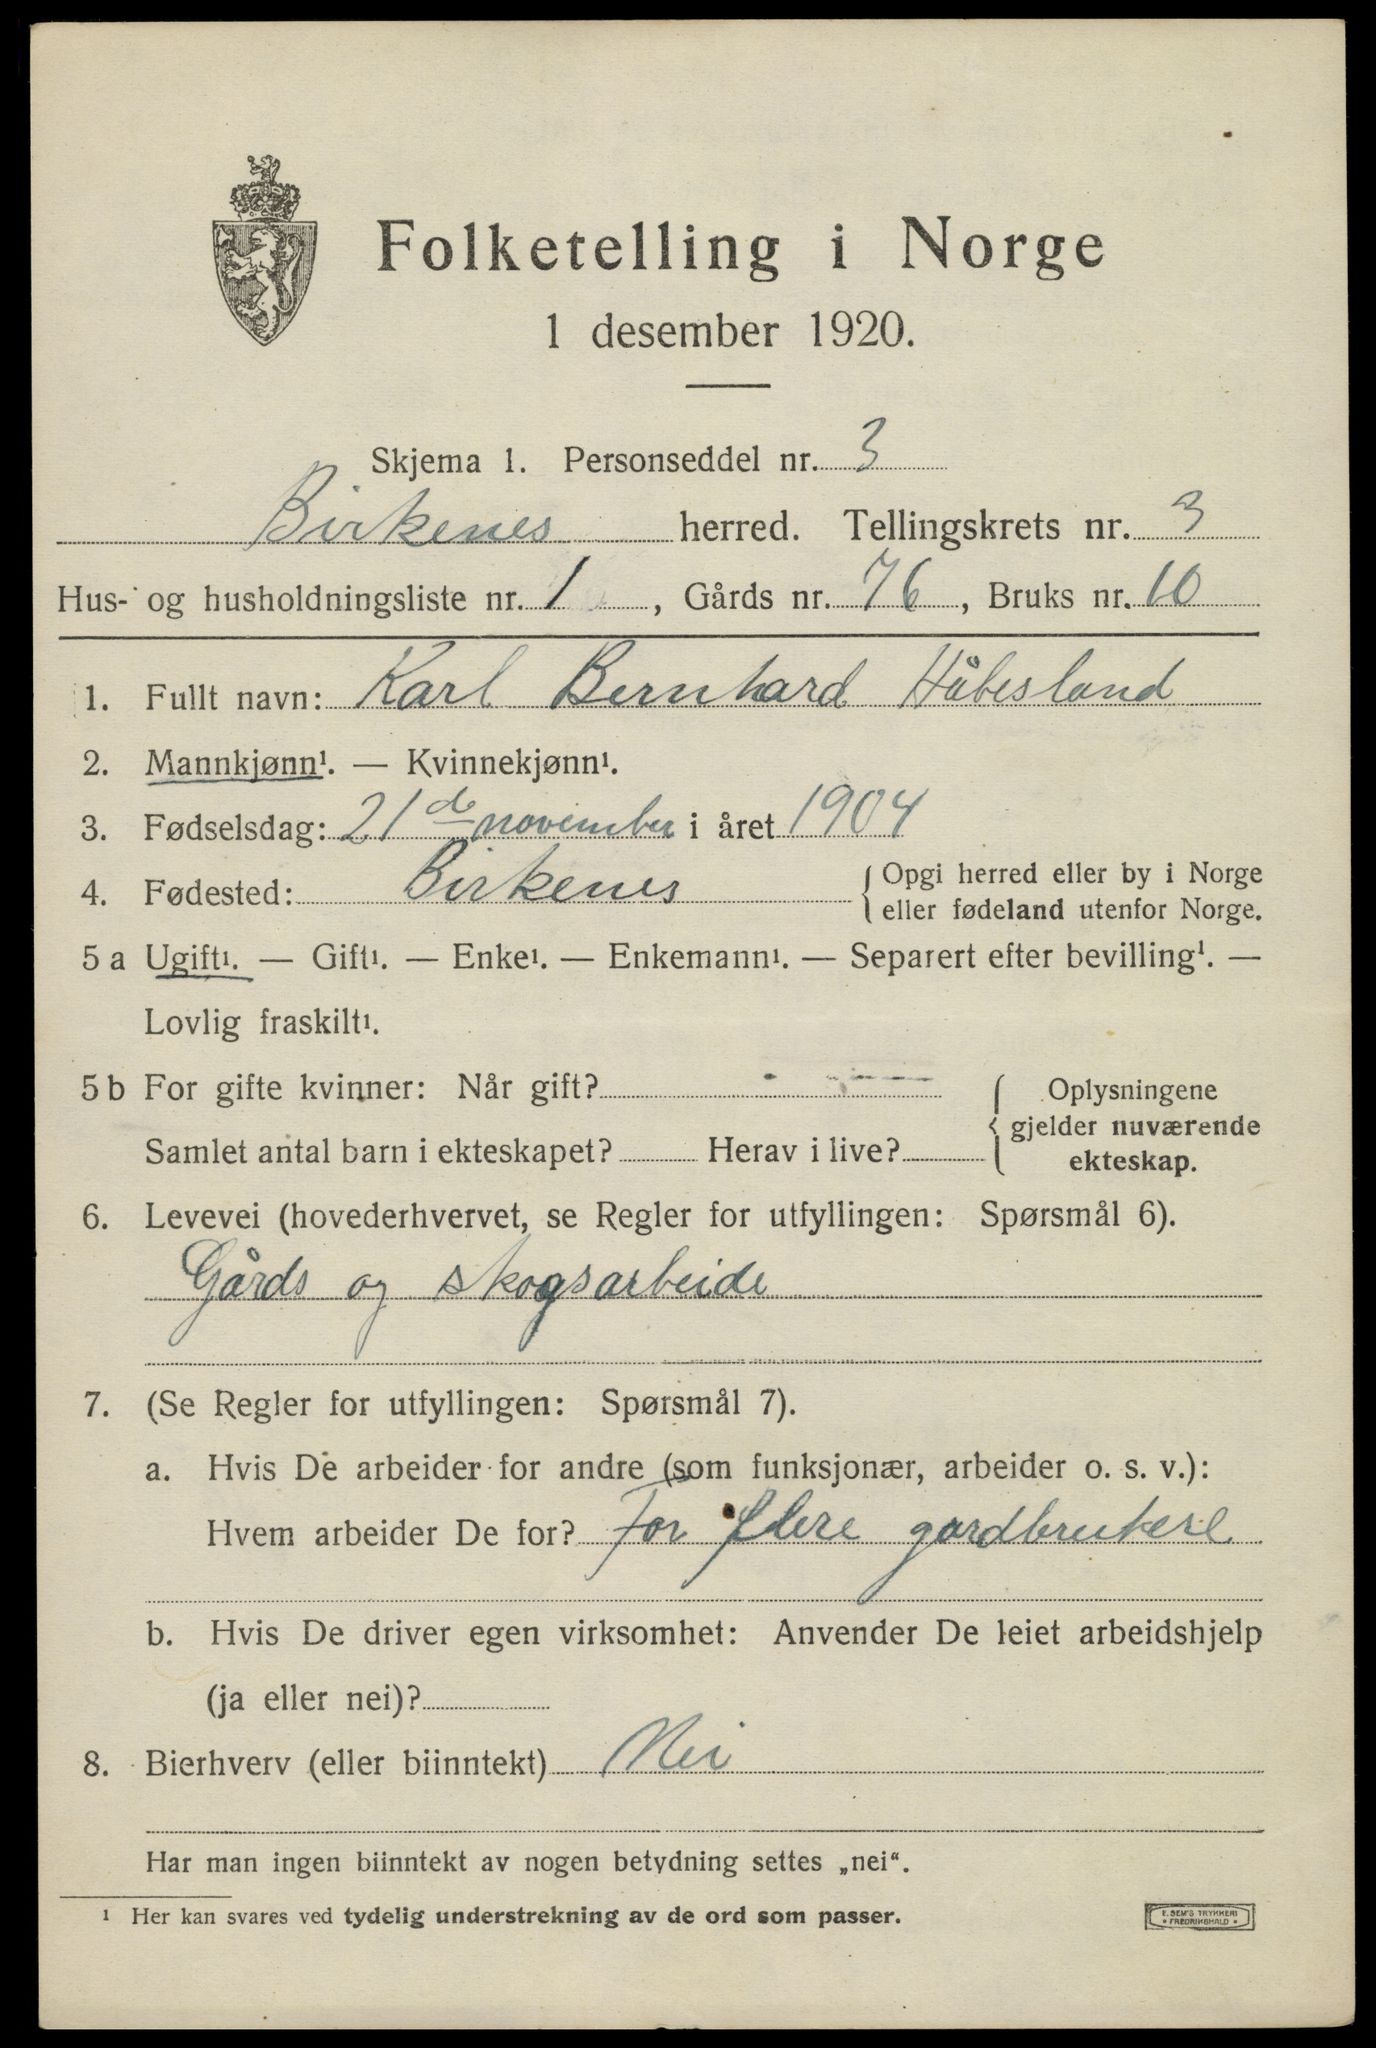 Folketelling i Norge
1 desember 1920.
Skjema 1. Personseddel nr. 3
Birkenes herred. Tellingskrets nr. 3
Hus- og husholdningsliste nr. 1, Gårds nr. 76, Bruks nr. 10
1. Fullt navn: Karl Bernhard Håbesland
2. Mannkjønn¹. — Kvinnekjønn¹.
3. Fødselsdag: 21de november i året 1904
4. Fødested: Birkenes { Opgi herred eller by i Norge
eller fødeland utenfor Norge.
5 a Ugift¹. — Gift¹. — Enke¹. — Enkemann¹. — Separert efter bevilling¹. —
Lovlig fraskilt¹.
5 b For gifte kvinner: Når gift? { Oplysningene
gjelder nuværende
Samlet antal barn i ekteskapet? Herav i live? ekteskap.
6. Levevei (hovederhvervet, se Regler for utfyllingen: Spørsmål 6).
Gårds og skogsarbeide
7. (Se Regler for utfyllingen: Spørsmål 7).
a. Hvis De arbeider for andre (som funksjonær, arbeider o. s. v.):
Hvem arbeider De for? For flere gardbrukere
b. Hvis De driver egen virksomhet: Anvender De leiet arbeidshjelp
(ja eller nei)?
8. Bierhverv (eller biinntekt) Nei
Har man ingen biinntekt av nogen betydning settes „nei“.
¹ Her kan svares ved tydelig understrekning av de ord som passer.
E. SEM'S TRYKKERI
• FREDRIKSHALD •